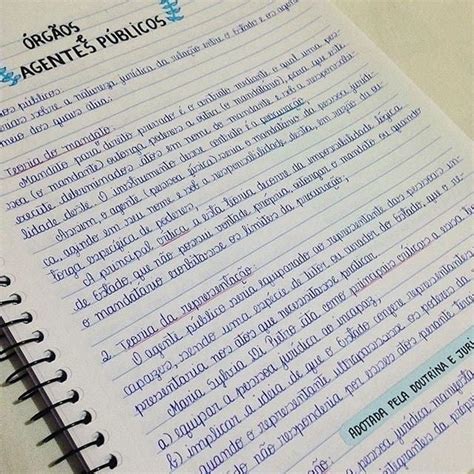 ÓRGÃOS
E
AGENTES PÚBLICOS
nos públicos.
sobre a natureza jurídica da relação entre o Estado e os agen
meio dos quais atua:
Teoria do mandato:
Mandato para direito privado é o contrato mediante o qual uma pes
soa (o mandante) outorga poderes a outra (o mandatário), para que este
execute determinados atos em nome do mandante e sob a responsabi
lidade deste. O instrumento desse contrato é a procuração;
Assim, o agente (pessoa física) seria o mandatário da pessoa jurídi
ca, agindo em seu nome e sob a responsabilidade desta, em razão da ou
torga específica de poderes;
A principal crítica a esta teoria decorre da impossibilidade lógica
de Estado que não possui vontade própria, outorgar o mandato ou quando
o mandatário exorbitasse os limites da procuração;
2. Teoria da representação:
O agente público seria equiparado ao representante das pessoas in
capazes, sendo uma espécie de tutor ou curador do Estado, que o re
presentaria nos atos que necessitasse praticar.
Maria Sylvia Di Pietro cita como principais críticas a essa te
a) equipar a pessoa jurídica ao incapaz;
b) implicar a ideia de que o Estado confere representantes
quando o representante ultrapassasse os poderes da
do não responderia por esses atos perante
ADOTADA PELA DOUTRINA E JURI
pessoa jurídica manifesta
agentes